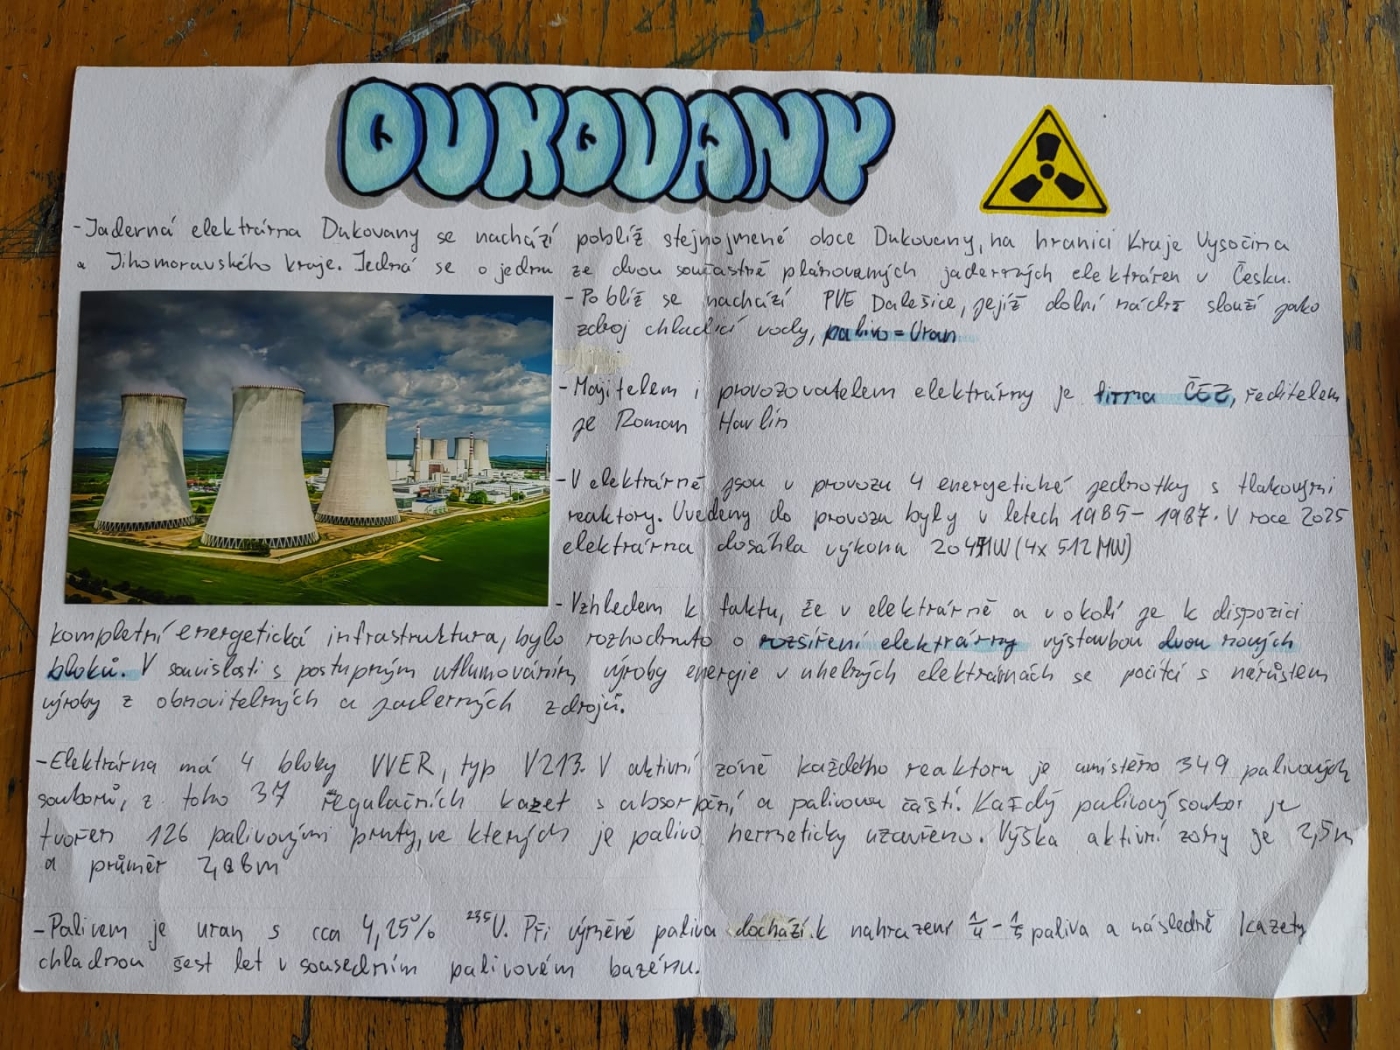 DUKOVANY
-Jaderná elektrárna Dukovany se nachází poblíž stejnojmené obce Dukovany, na hranici Kraje Vysočina
a Jihomoravského kraje. Jedná se o jednu ze dvou součastně plánovaných jaderných elektráren v Česku.
-Poblíž se nachází PVE Dalešice, jejíž dolní nádrž slouží jako
zdroj chladící vody, palivo = Uran
-Majitelem i provozovatelem elektrárny je firma ČEZ, ředitelem
je Roman Havlín
-V elektrárně jsou v provozu 4 energetické jednotky s tlakovými
reaktory. Uvedeny do provozu byly v letech 1985-1987. V roce 2025
elektrárna dosáhla výkonu 204MW (4x 512 MW)
-Vzhledem k faktu, že v elektrárně a v okolí je k dispozici
kompletní energetická infrastruktura, bylo rozhodnuto o rozšíření elektrárny výstavbou dvou nových
bloků. V souvislosti s postupným utlumováním výroby energie v uhelných elektrárnách se počítá s nárůstem
výroby z obnovitelných a jaderných zdrojů.
-Elektrárna má 4 bloky VVER, typ V213. V aktivní zóně každého reaktoru je umístěno 349 palivových
souborů, z toho 37 regulačních kazet s absorpční a palivovou částí. Každý palivový soubor je
tvořen 126 palivovými pruty, ve kterých je palivo hermeticky uzavřeno. Výška aktivní zóny je 2,5m
a průměr 2,88m
-Palivem je uran s cca 4,25% ²³⁵U. Při výměně paliva dochází k nahrazení 1/4 - 1/5 paliva a následně kazety
chladnou šest let v sousedním palivovém bazénu.